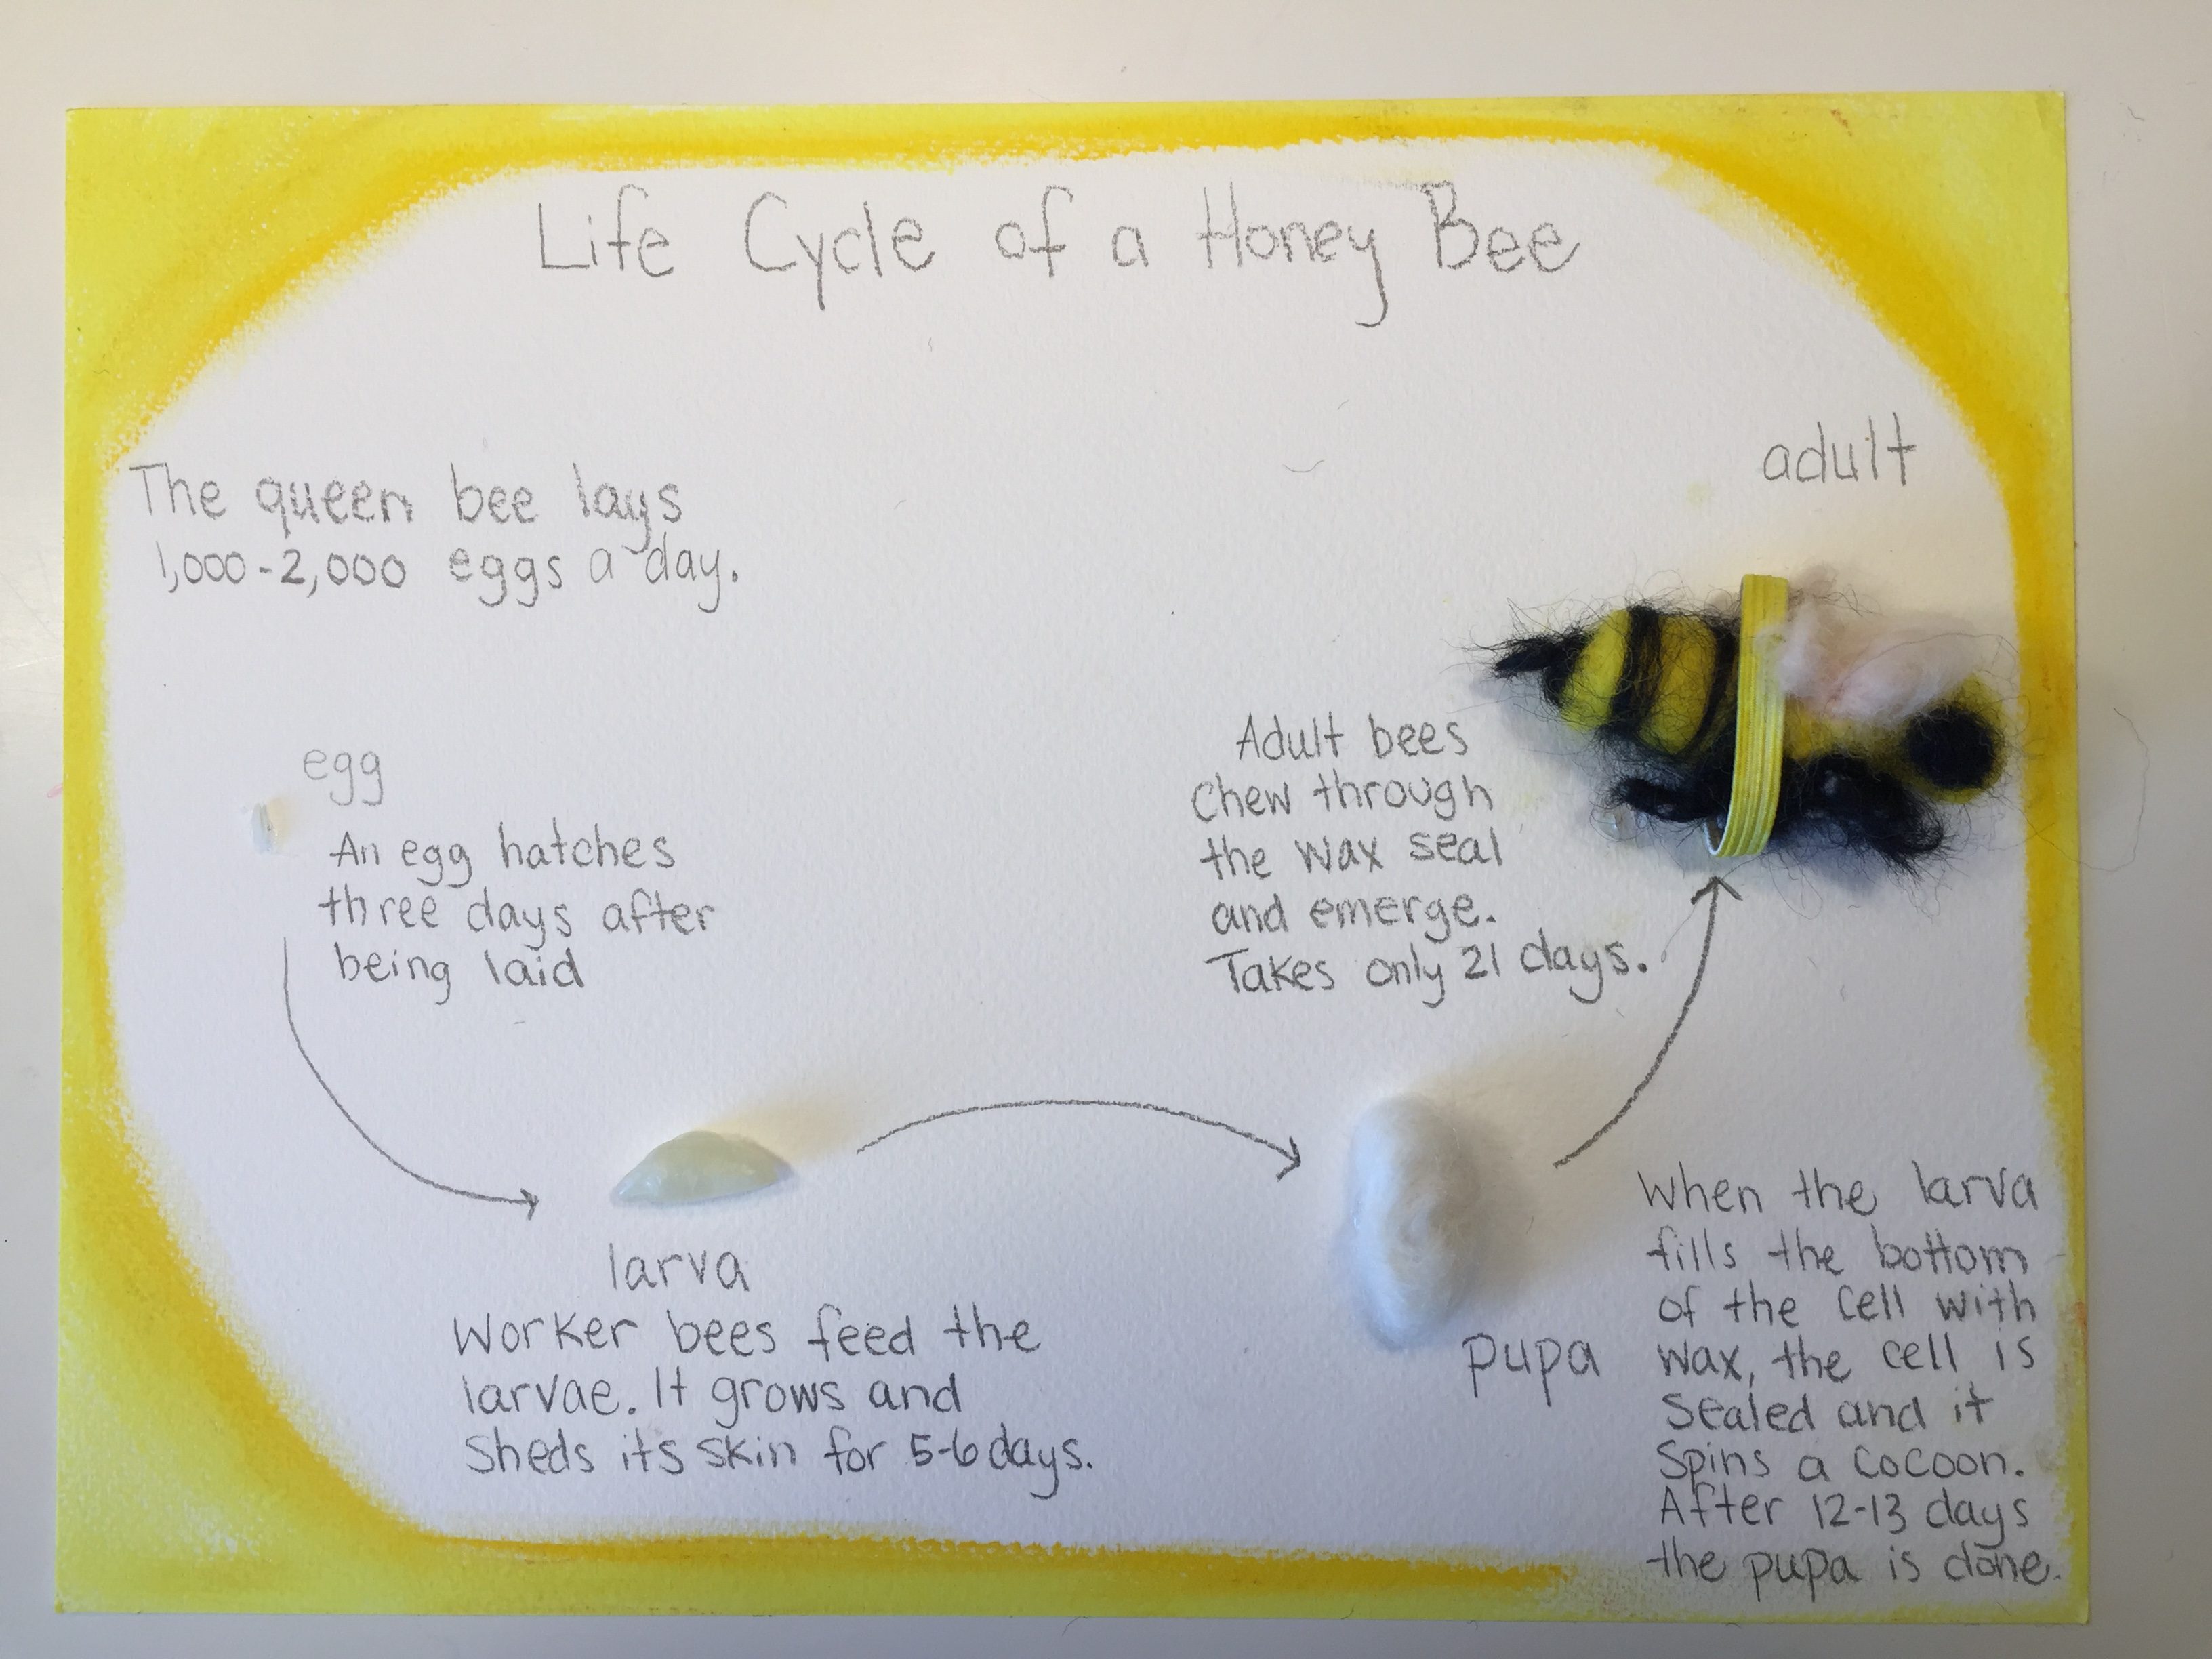 Life Cycle of a Honey Bee
The queen bee lays
1,000-2,000 eggs a day.
egg
An egg hatches
three days after
being laid
larva
Worker bees feed the
larvae. It grows and
Sheds its skin for 5-6 days.
pupa
When the larva
fills the bottom
of the cell with
wax, the cell is
Sealed and it
Spins a cocoon.
After 12-13 days
the pupa is done.
adult
Adult bees
Chew through
the wax seal
and emerge.
Takes only 21 days.